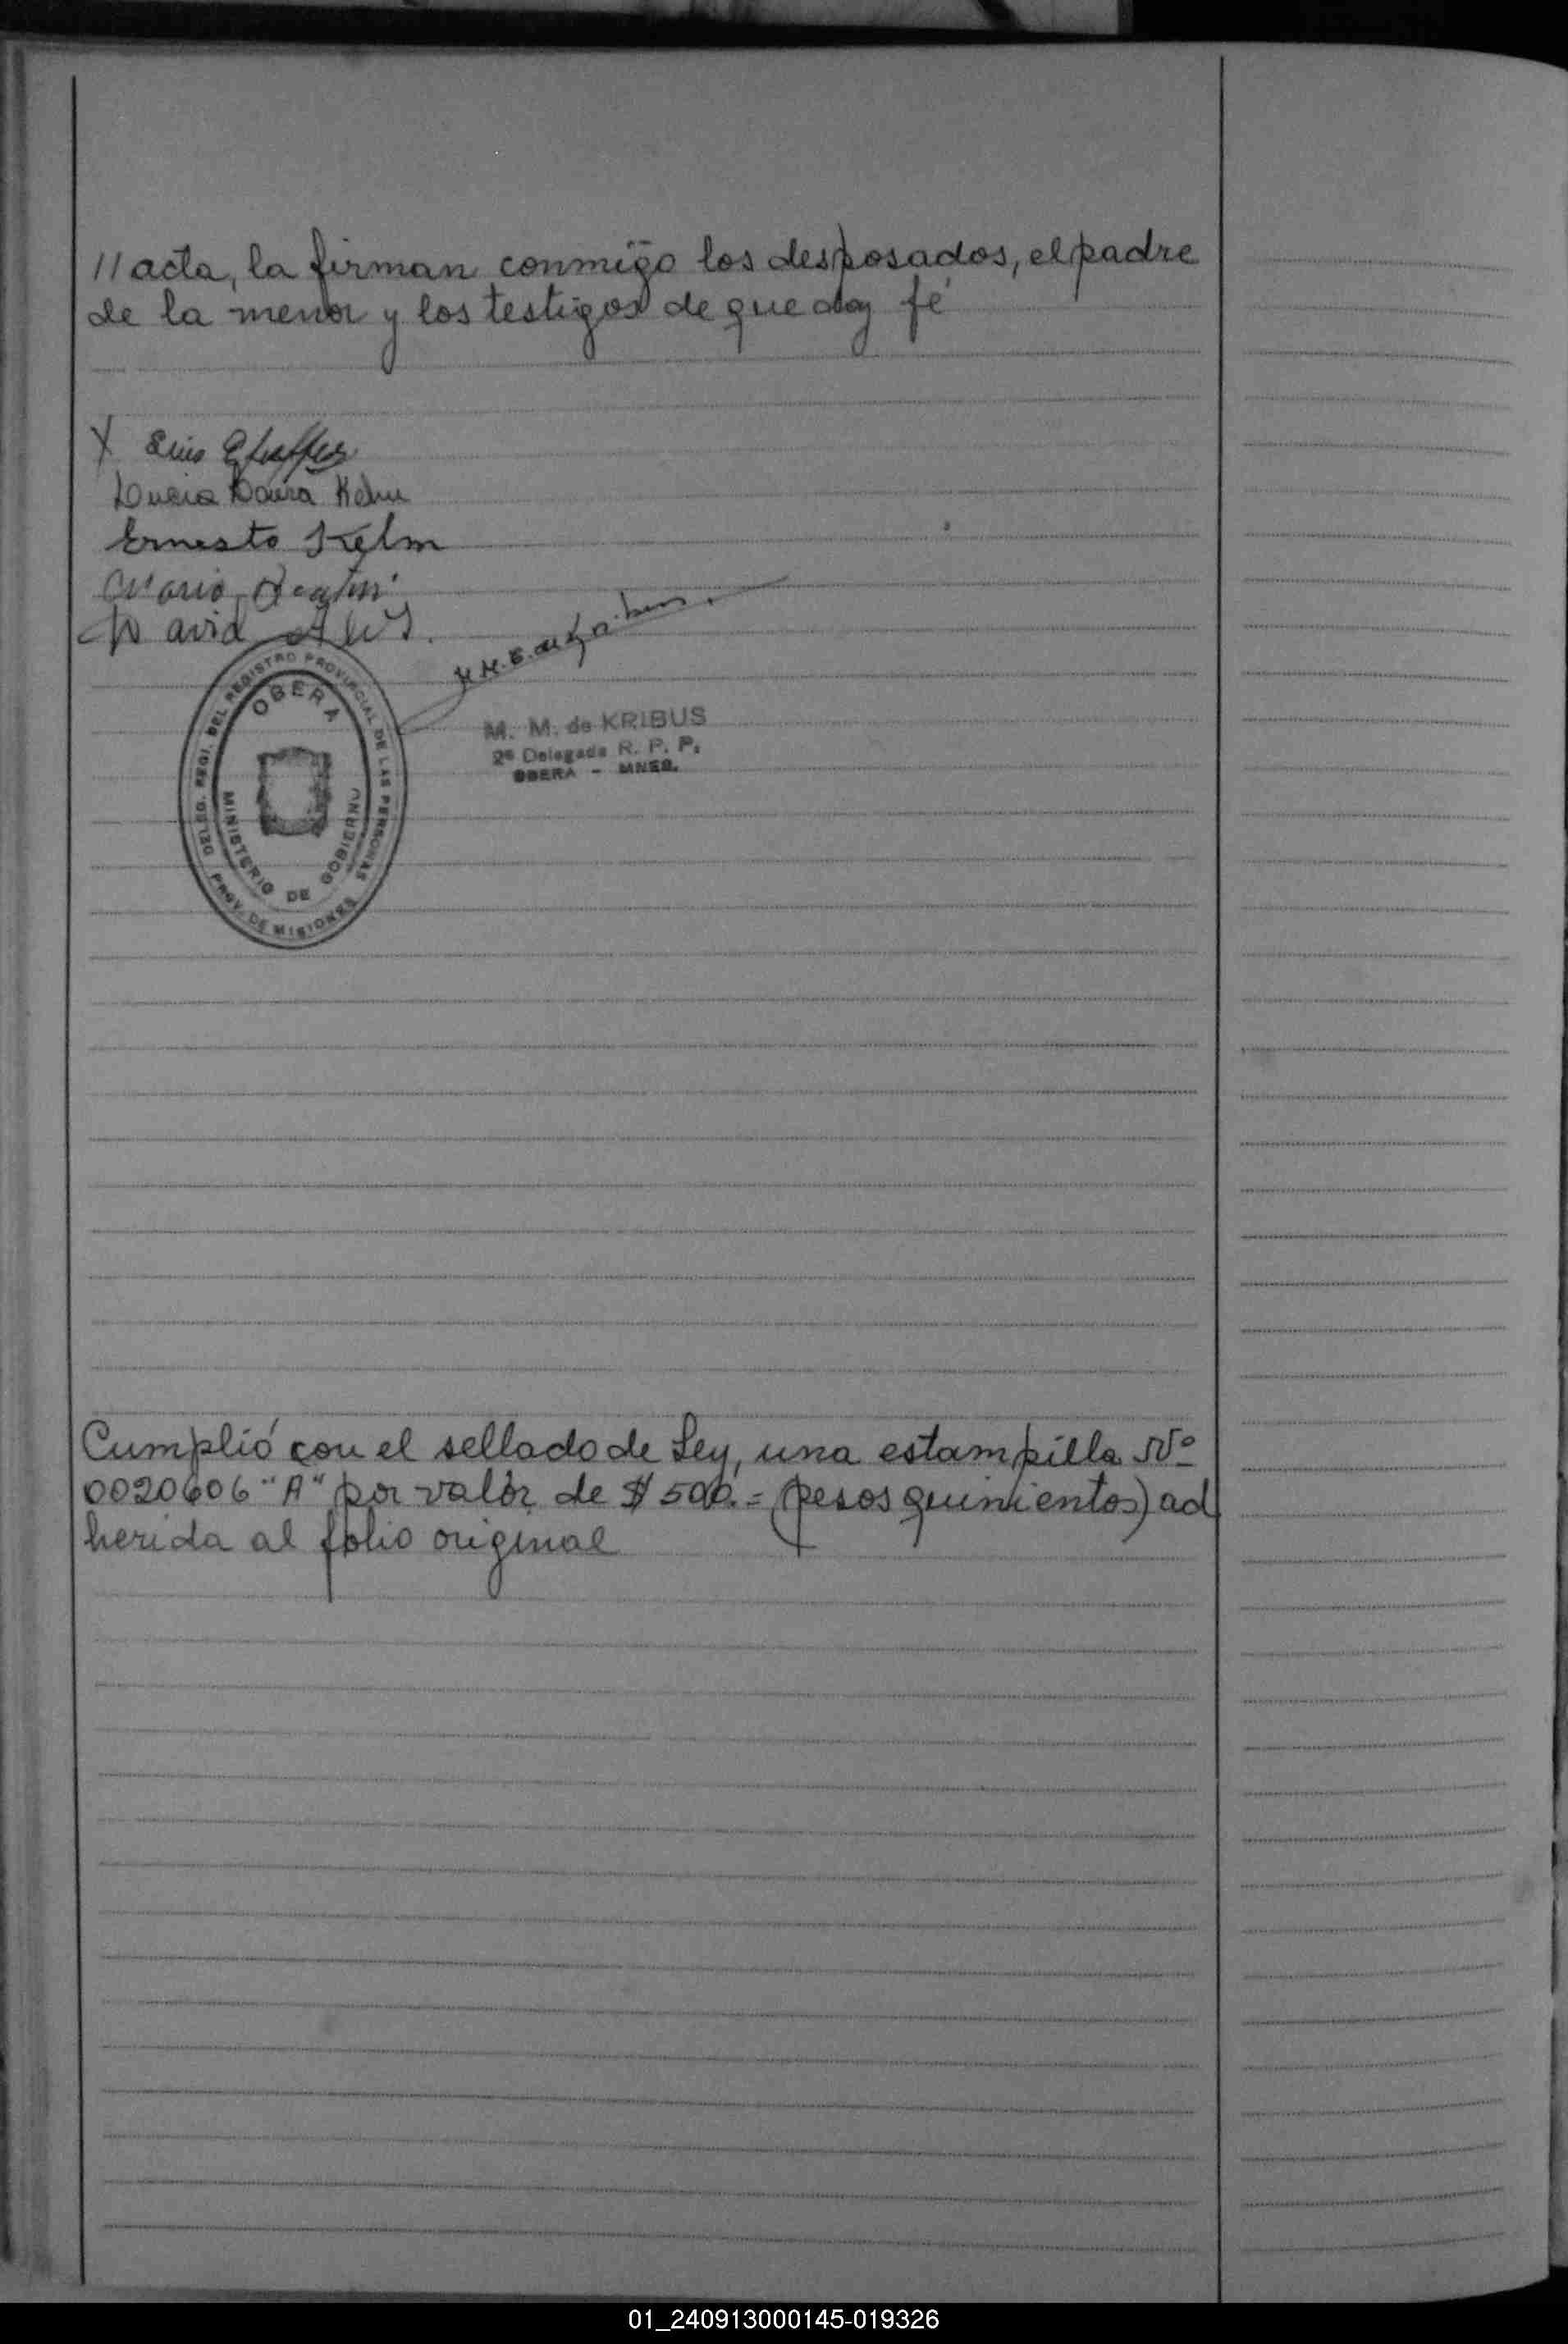 //acta, la firman conmigo los desposados, el padre
de la menor y los testigos de que doy fé
X Luis
Lucia Laura Kelm
Ernesto Kelm
Mario
David
M. M. de KRIBUS
2ª Delegada R. P. P.
OBERA - MNES.
DELEG. REGI. DEL REGISTRO PROVINCIAL DE LAS PERSONAS
PROV. DE MISIONES
OBERA
MINISTERIO DE GOBIERNO
Cumplió con el sellado de Ley, una estampilla Nº
0020606 "A" por valor de $ 500.= (pesos quinientos) ad
herida al folio original
01_240913000145-019326